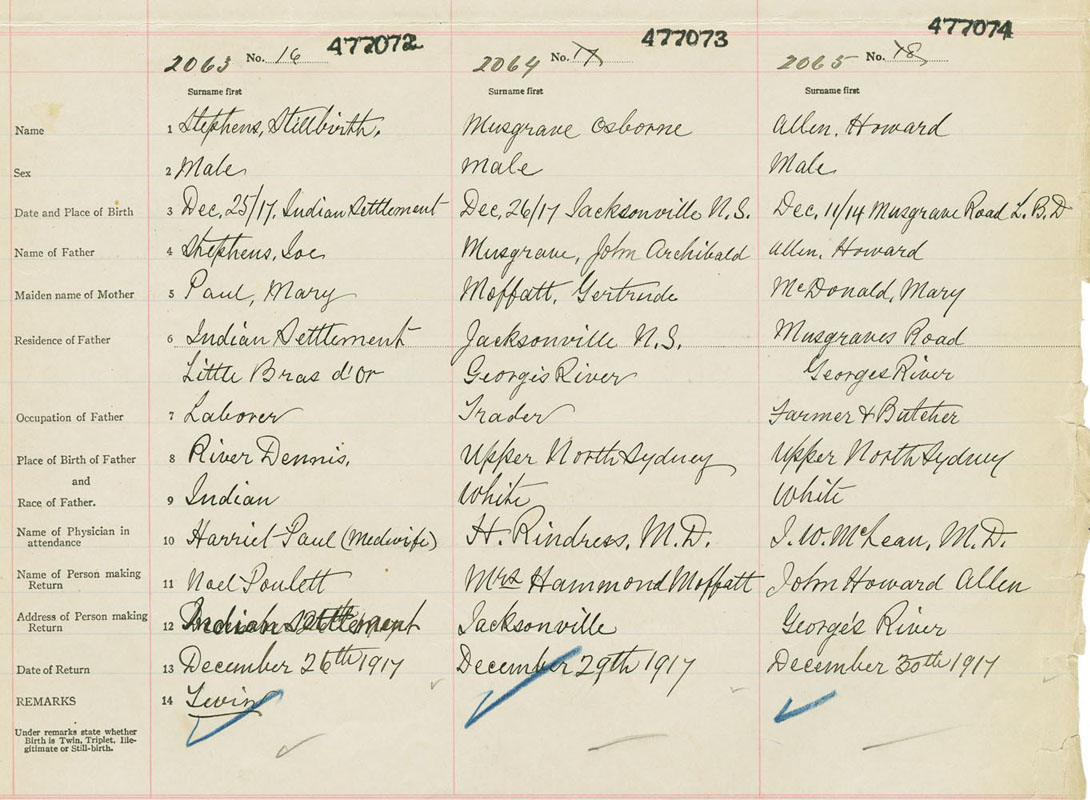 477072 477073 477074
2063 No. 16 2064 No. 17 2065 No. 18
Surname first Surname first Surname first
Name 1 Stephens, Stillbirth. Musgrave Osborne Allen, Howard
Sex 2 Male Male Male
Date and Place of Birth 3 Dec, 25/17, Indian Settlement Dec, 26/17 Jacksonville N.S. Dec. 11/14 Musgrave Road L.B.D
Name of Father 4 Stephens, Joe Musgrave, John Archibald Allen, Howard
Maiden name of Mother 5 Paul, Mary Moffatt, Gertrude McDonald, Mary
Residence of Father 6 Indian Settlement Jacksonville N.S. Musgraves Road
Little Bras d'Or George's River Georges River
Occupation of Father 7 Laborer Trader Farmer & Butcher
Place of Birth of Father 8 River Dennis. Upper North Sydney Upper North Sydney
and
Race of Father. 9 Indian White White
Name of Physician in attendance 10 Harriet Paul (Medwife) H. Rindress, M.D. J.W. McLean, M.D.
Name of Person making Return 11 Noel Poulett Mrs Hammond Moffatt John Howard Allen
Address of Person making Return 12 Indian Settlement Jacksonville George's River
Date of Return 13 December 26th 1917 December 29th 1917 December 30th 1917
REMARKS 14 Twin
Under remarks state whether
Birth is Twin, Triplet, Ille-
gitimate or Still-birth.